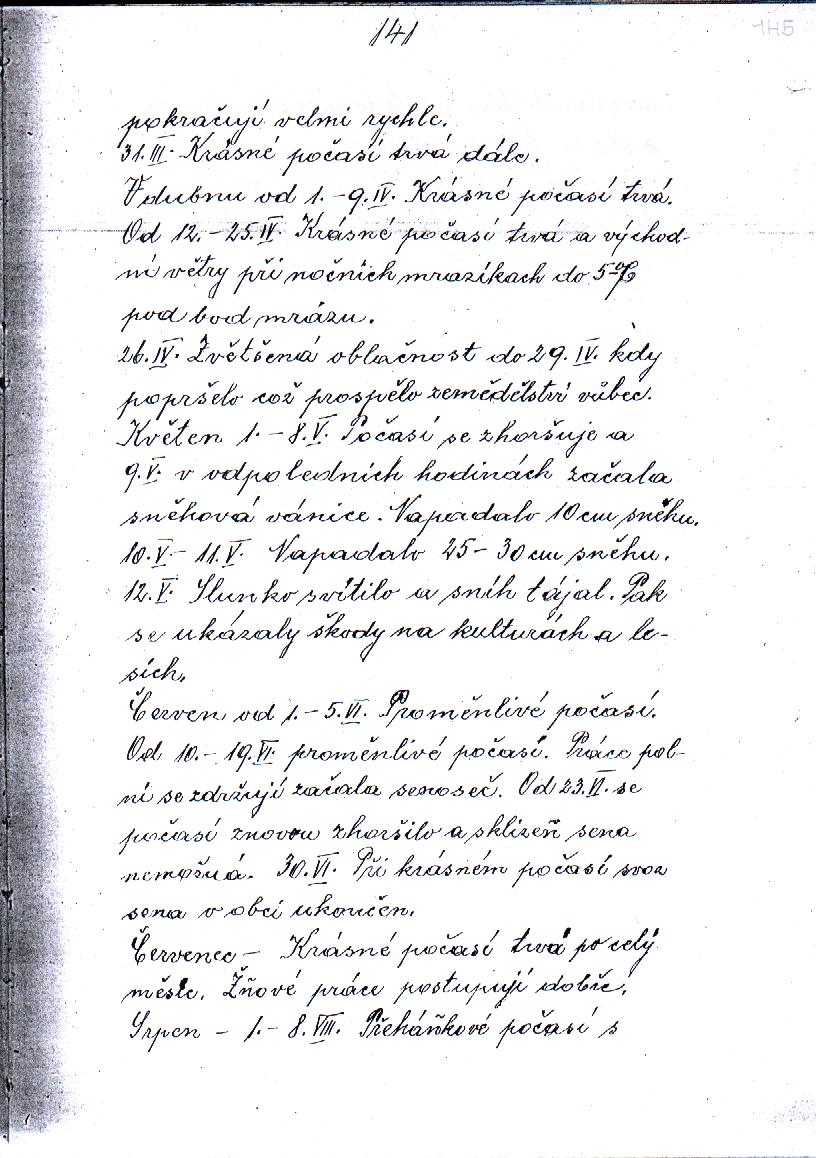 141
145
pokračují velmi rychle.
31.III. Krásné počasí trvá dále.
V dubnu od 1.–9.IV. Krásné počasí trvá.
Od 12.–25.IV. Krásné počasí trvá a východ-
ní větry při nočních mrazíkach do 5°C
pod bod mrázu.
26.IV. Zvětšená oblačnost do 29.IV. kdy
popršelo což prospělo zemědělství vůbec.
Květen 1.–8.V. Počasí se zhoršuje a
9.V. v odpoledních hodinách začala
sněhová vánice. Napadalo 10 cm sněhu.
10.V.–11.V. Napadalo 25–30 cm sněhu.
12.V. Slunko svítilo a sníh tájal. Pak
se ukázaly škody na kulturách a le-
sích.
Červen od 1.–5.VI. Proměnlivé počasí.
Od 10.–19.VI. proměnlivé počasí. Práce pol-
ní se zdržují začala senoseč. Od 23.VI. se
počasí znovu zhoršilo a sklizeň sena
nemožná. 30.VI. Při krásném počasí svoz
sena v obci ukončen.
Červenec – Krásné počasí trvá po celý
měsíc. Žňové práce postupují dobře.
Srpen – 1.–8.VIII. Přeháňkové počasí s